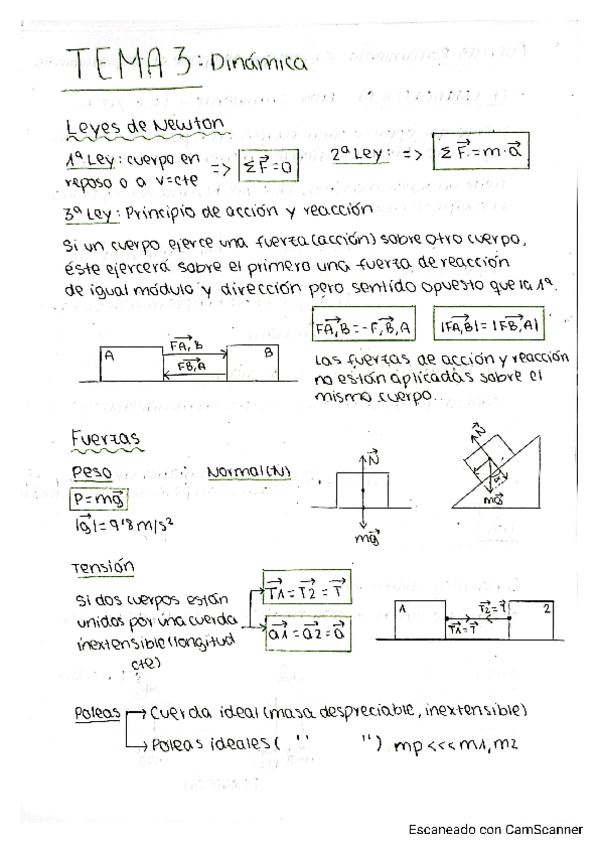 TEMA 3: Dinámica
Leyes de Newton
1ª Ley: cuerpo en reposo o a v=cte => ΣF⃗=0
2ª Ley: => ΣF⃗=m·a⃗
3ª Ley: Principio de acción y reacción
Si un cuerpo ejerce una fuerza (acción) sobre otro cuerpo,
éste ejercerá sobre el primero una fuerza de reacción
de igual módulo y dirección pero sentido opuesto que la 1ª.
F⃗A,B = -F⃗,B,A
|F⃗A,B| = |F⃗B,A|
A
F⃗A,B
F⃗B,A
B
Las fuerzas de acción y reacción
no están aplicadas sobre el
mismo cuerpo...
Fuerzas
Peso
Normal (N)
P=mg⃗
|g⃗|=9'8 m/s²
N⃗
mg⃗
N⃗
α
mg⃗
Tensión
Si dos cuerpos están
unidos por una cuerda
inextensible (longitud
cte)
T⃗1 = T⃗2 = T⃗
a⃗1 = a⃗2 = a⃗
1
T⃗1=T⃗
T⃗2=T⃗
2
Poleas → Cuerda ideal (masa despreciable, inextensible)
→ Poleas ideales ( '' '' ) mp <<< m1, m2
Escaneado con CamScanner